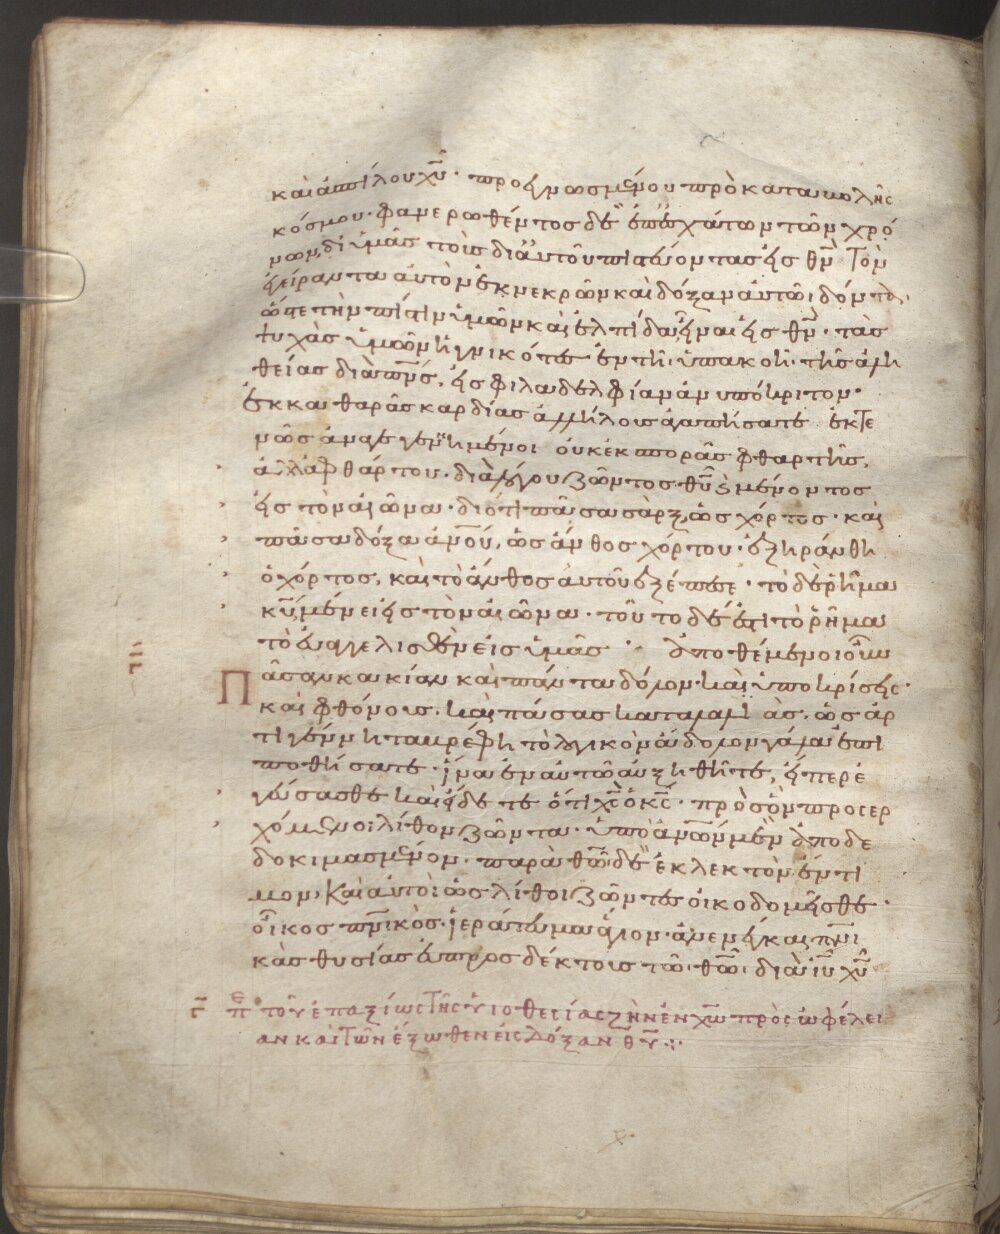 καὶ ἀσπίλου χυ̅· προεγνωσμένου πρὸ καταβολῆς
κόσμου· φανερωθέντος δὲ ἐπ' ἐσχάτων τῶν χρό
νων, δι ὑμᾶς τοὺς δι αὐτοῦ πιστεύοντας εἰς θν̅ Τὸν
ἐγείραντα αὐτὸν ἐκ νεκρῶν καὶ δόξαν αὐτῶ δόντα,
ὥστε τὴν πίστιν ὑμῶν καὶ ἐλπίδα εἶναι εἰς θν̅· τὰς
ψυχὰς ὑμῶν ἡγνικότες ἐν τῆ ὑπακοῆ· τῆς ἀλη
θείας διὰ πνς̅, εἰς φιλαδελφίαν ἀνυπόκριτον·
ἐκ καθαρᾶς καρδίας ἀλλήλους ἀγαπήσατε ἐκτε
νῶς ἀναγεγεννημένοι οὐκ ἐκ σπορᾶς φθαρτῆς,
ἀλλ' ἀφθάρτου· διὰ λόγου ζῶντος θυ̅ κ μένοντος
εἰς τὸν αἰῶνα· διότι πᾶσα σὰρξ, ὡς χόρτος· καὶ
πᾶσα δόξα ἀνου̅, ὡς ἄνθος χόρτου· ἐξηράνθη
ὁ χόρτος, καὶ τὸ ἄνθος αὐτοῦ ἐξέπεσε· τὸ δὲ ῥῆμα
κυ̅ μένει εἰς τὸν αἰῶνα· τοῦτο δέ ἐστι τὸ ῥῆμα
τὸ εὐαγγελισθὲν εἰς ὑμᾶς· ἀποθέμενοι οὖν
Πᾶσαν κακίαν καὶ πάντα δόλον· καὶ ὑποκρίσεις·
καὶ φθόνους· καὶ πάσας καταλαλιὰς· ὡς ἀρ
τιγέννητα βρέφη τὸ λογικὸν ἄδολον γάλα ἐπι
ποθήσατε· ἵνα ἐν αὐτῶ αὐξηθῆτε, εἴπερ ἐ
γεύσασθε καὶ εἴδετε ὅτι χς̅ ὁ κς̅· πρὸς ὃν προσερ
χόμενοι λίθον ζῶντα· ὑπὸ ἀνων̅ μὲν ἀποδε
δοκιμασμένον· παρὰ θω̅ δὲ ἐκλεκτὸν ἔντι
μον, Καὶ αὐτοὶ ὡς λίθοι ζῶντες οἰκοδομεῖσθε·
οἶκος πνικὸς̅· ἱεράτευμα ἅγιον· ἀνενέγκαι πνι̅
κὰς θυσίας εὐπροσδέκτους τῶ θω̅· διὰ ιυ̅ χυ̅
γ̅ π ε τοῦ ἐπαξίως τῆς υἱοθεσίας ζῆν ἐν χω̅ πρὸς ὠφέλει
αν καὶ τῶν ἔξωθεν εἰς δόξαν θυ̅